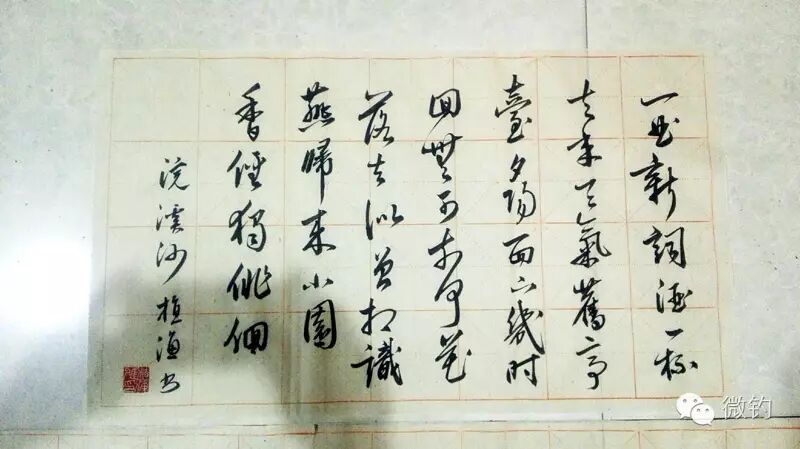 一曲新詞酒一杯
去年天氣舊亭
臺夕陽西下幾时
回無可奈何花
落去似曾相識
燕歸来小園
香徑獨徘徊
浣溪沙 书
微钓